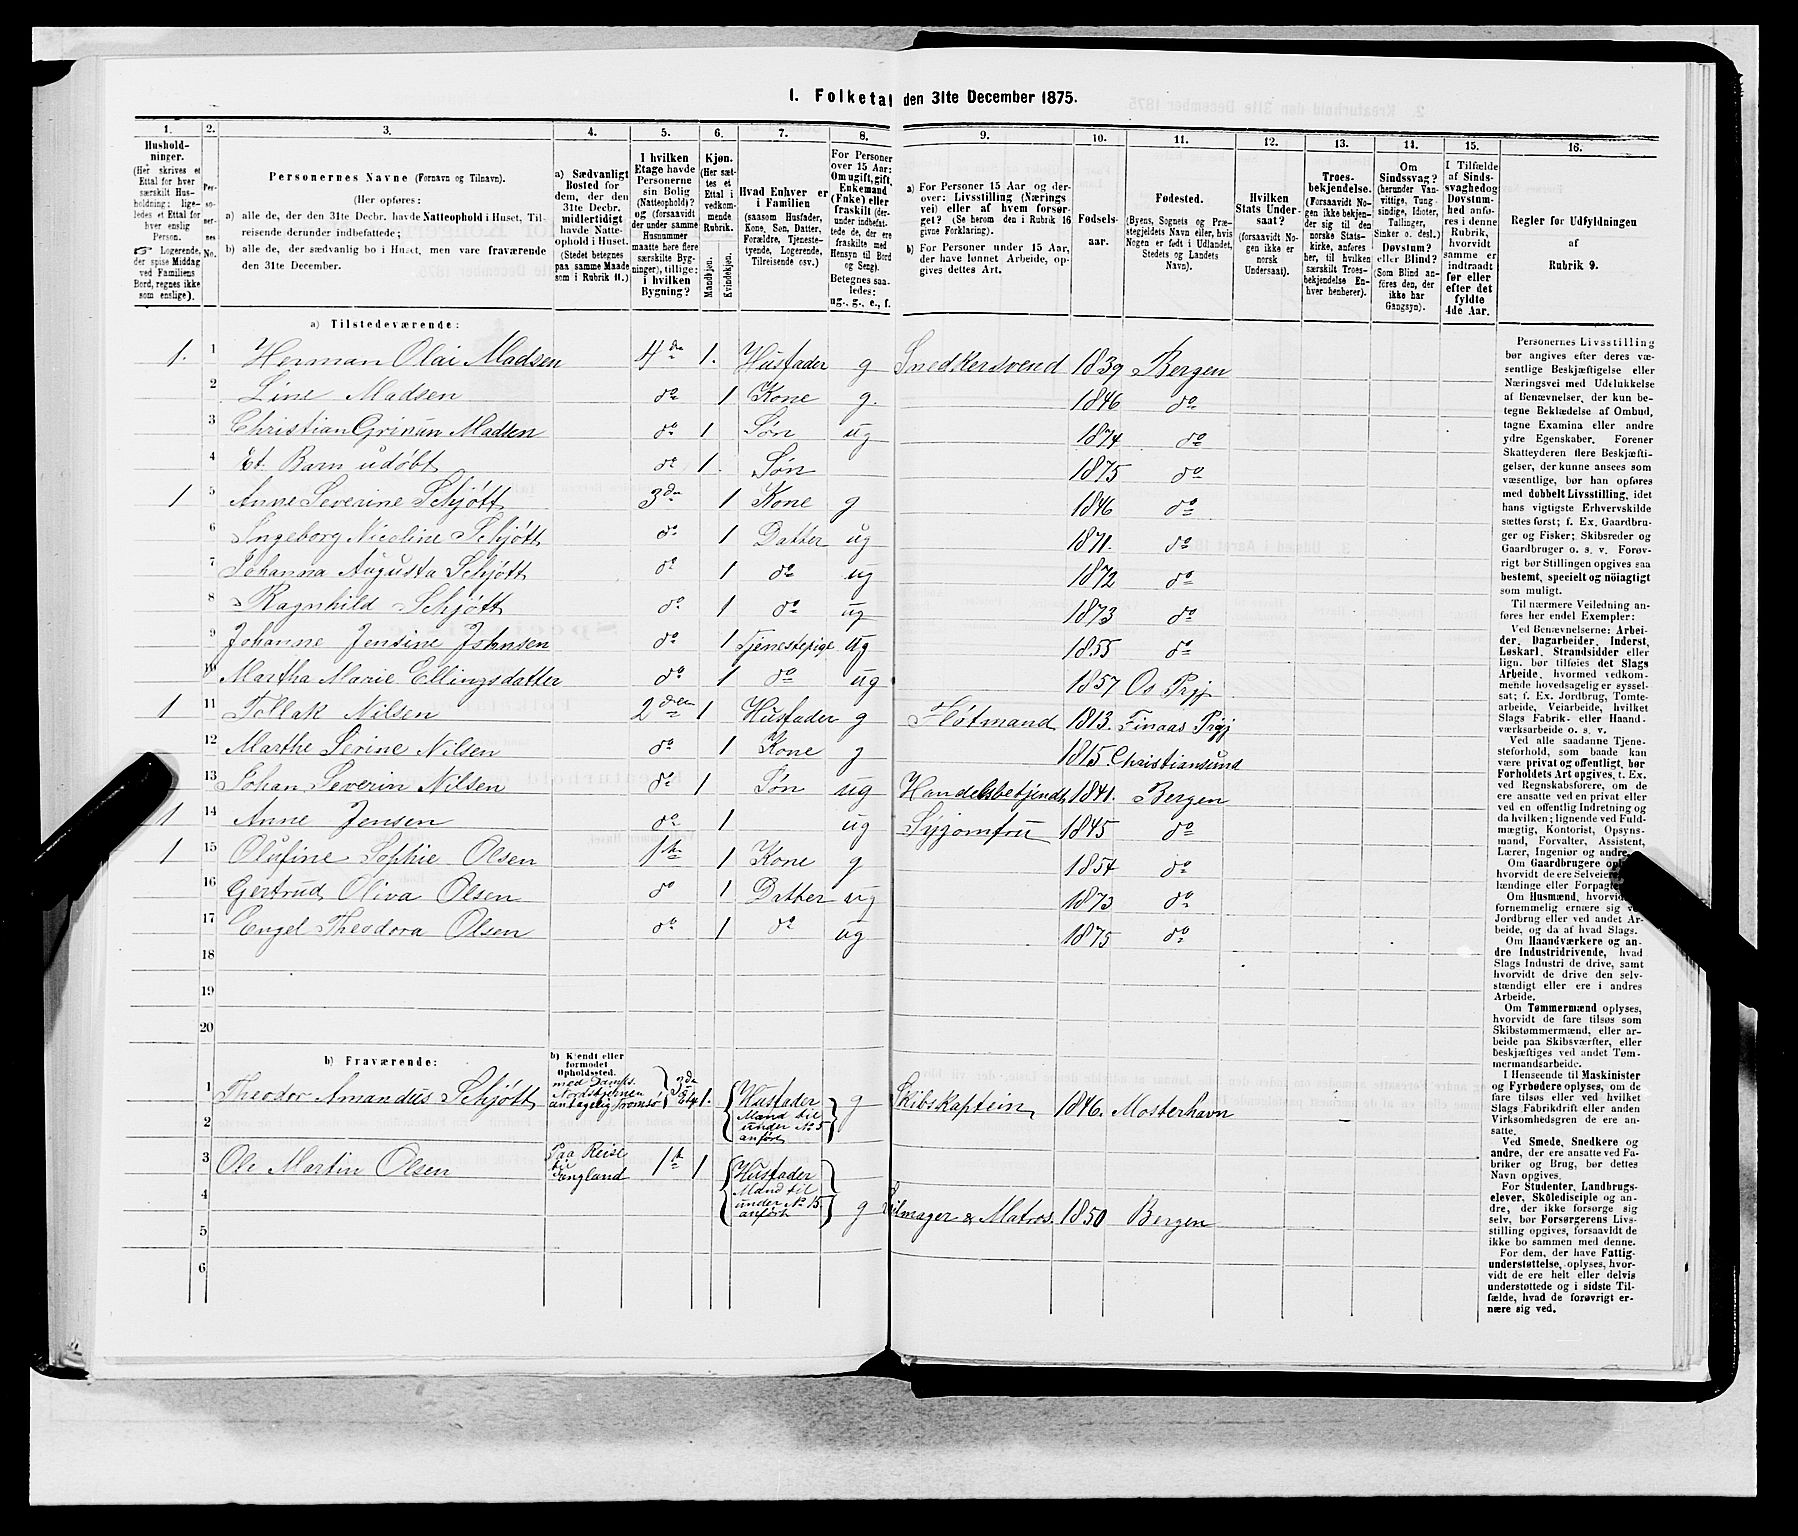 1. Folketal den 31te December 1875.
1. 2. 3. 4. 5. 6. 7. 8. 9. 10. 11. 12. 13. 14. 15. 16.
Hushold-
ninger.
(Her skrives et
Ettal for hver
særskilt Hus-
holdning; lige-
ledes et Ettal for
hver enslig
Person.
☞ Logerende,
der spise Middag
ved Familiens
Bord, regnes ikke
som enslige).
Per-
so-
ner-
nes
No.
Personernes Navne (Fornavn og Tilnavn).
(Her opføres:
a) alle de, der den 31te Decbr. havde Natteophold i Huset, Til-
reisende derunder indbefattede;
b) alle de, der sædvanlig bo i Huset, men vare fraværende
den 31te December.
a) Sædvanligt
Bosted for
dem, der den
31te Decbr.
midlertidigt
havde Natte-
ophold i Huset.
(Stedet betegnes
paa samme Maade
som i Rubrik 11.)
I hvilken
Etage havde
Personerne
sin Bolig
(Natteophold)?
og (forsaavidt
der under
samme
Husnummer
maatte høre flere
særskilte Byg-
ninger), tillige:
i hvilken
Bygning?
Kjøn.
(Her sæt-
tes et
Ettal i
vedkom-
mende
Rubrik.
Mandkjøn.
Kvindekjøn.
Hvad Enhver er
i Familien
(saasom Husfader,
Kone, Søn, Datter,
Forældre, Tjeneste-
tyende, Logerende,
Tilreisende osv.)
For Personer
over 15 Aar:
Om ugift, gift,
Enkemand
(Enke) eller
fraskilt (der-
under indbefat-
tede de, der ere
fraskilte med
Hensyn til Bord
og Seng).
Betegnes saa-
ledes:
ug., g., e., f.
a) For Personer 15 Aar og der-
over: Livsstilling (Nærings
vei) eller af hvem forsør-
get? (Se herom den i Rubrik 16
givne Forklaring).
b) For Personer under 15 Aar,
der have lønnet Arbeide, op-
gives dettes Art.
Fødsels-
aar.
Fødested.
(Byens, Sognets og Præ-
stegjeldets Navn eller, hvis
Nogen er født i Udlandet,
Stedets og Landets
Navn).
Hvilken
Stats Under-
saat?
(forsaavidt No-
gen ikke er
norsk
Undersaat).
Troes-
bekjendelse.
(Forsaavidt No-
gen ikke bekjen-
der sig til den
norske Stats-
kirke, anføres
her, til hvilken
særskilt Troes-
bekjendelse En-
hver henhører).
Om
Sindssvag?
(herunder Van-
vittige, Tung-
sindige, Idioter,
Tullinger,
Sinker o. desl.)
Døvstum?
eller Blind?
(Som Blind an-
føres den, der
ikke har
Gangsyn).
I Tilfælde
af Sinds-
svaghed og
Døvstum-
hed anfø-
res i denne
Rubrik,
hvorvidt
samme er
indtraadt
før eller
efter det
fyldte
4de Aar.
Regler for Udfyldningen
af
Rubrik 9.
a) Tilstedeværende:
1. 1 Herman Olai Madsen 4de 1. Husfader g Snedkersvend 1839 Bergen
2 Line Madsen do 1 Kone g. 1846 do
3 Christian Grinan Madsen do 1 Søn ug 1874 do
4 Et Barn udøbt do 1. Søn 1875 do
1 5 Anne Severine Schjøtt 3de 1 Kone g 1846 do
6 Ingeborg Nicoline Schjøtt do 1 Datter ug 1871. do
7 Johanna Augusta Schjøtt do 1 do ug 1872 do
8 Ragnhild Schjøtt do 1 do ug 1873 do
9 Johanne Jensine Johnsen do 1 Tjenestepige ug 1855 do
10 Martha Marie Ellingsdatter do 1 do ug 1857 Os Prgj
1 11 Tollak Nilsen 2den 1 Husfader g Fløtmand 1813. Finaas Prgj
12 Marthe Serine Nilsen do 1 Kone g 1815 Christiansund
13 Johan Severin Nilsen do 1 Søn ug Handelsbetjendt 1841. Bergen
1 14 Anne Jensen do 1 ug Syjomfru 1845 do
1 15 Olufine Sophie Olsen 1ste 1 Kone g 1854 do
16 Gertrud Oliva Olsen do 1 Datter ug 1873 do
17 Engel Theodora Olsen do 1 do ug 1875 do
18
19
20
b) Fraværende:
b) Kjendt eller
formodet
Opholdssted.
1 Theodor Amandus Schjøtt med Damps. Nordstjernen antagelig Tromsø 3de Etg 1. Husfader g Skibskaptein 1846. Mosterhavn
2 Mand til
under No 5
anført
3 Ole Martin Olsen Paa Reise til England 1ste 1 Husfader
4 Mand til
under No 15.
anført g Seilmager & Matros 1850 Bergen
5
6
Personernes Livsstilling
bør angives efter deres væ-
sentlige Beskjæftigelse eller
Næringsvei med Udelukkelse
af Benævnelser, der kun be-
tegne Beklædelse af Ombud,
tagne Examina eller andre
ydre Egenskaber. Forener
Skatteyderen flere Beskjæfti-
gelser, der kunne ansees som
væsentlige, bør han opføres
med dobbelt Livsstilling, idet
hans vigtigste Erhvervskilde
sættes først; f. Ex. Gaardbru-
ger og Fisker; Skibsreder og
Gaardbruger o. s. v. Forøv-
rigt bør Stillingen opgives saa
bestemt, specielt og nöiagtigt
som muligt.
Til nærmere Veiledning an-
føres her endel Exempler:
Ved Benævnelserne: Arbei-
der, Dagarbeider, Inderst,
Løskarl, Strandsidder eller
lign. bør tilføies det Slags
Arbeide, hvormed vedkom-
mende hovedsagelig er syssel-
sat; f. Ex. Jordbrug, Tomte-
arbeide, Veiarbeide, hvilket
Slags Fabrik- eller Haand-
værksarbeide o. s. v.
Ved alle saadanne Tjene-
steforhold, som baade kan
være privat og offentligt, bør
Forholdets Art opgives, t. Ex.
ved Regnskabsførere, om de
ere ansatte ved en privat eller
ved en offentlig Indretning og
da hvilken; lignende ved Fuld-
mægtig, Kontorist, Opsyns-
mand, Forvalter, Assistent,
Lærer, Ingeniør og andre.
Om Gaardbrugere
hvorvidt de ere Selveiere,
lændinge eller Forpagtere.
Om Husmænd, hvorvidt
fornemmelig ernære sig ved
Jordbrug eller ved andet Ar-
beide, og da af hvad Slags.
Om Haandværkere og an-
dre Industridrivende, hvad
Slags Industri de drive, samt
hvorvidt de drive den selv-
stændigt eller ere i andres
Arbeide.
Om Tømmermænd oplyses,
hvorvidt de fare tilsøs som
Skibstømmermænd, eller ar-
beide paa Skibsværfter, eller
beskjæftiges ved andet Tøm-
mermandsarbeide.
I Henseende til Maskinister
og Fyrbødere oplyses, om de
fare tilsøs eller ved hvilket
Slags Fabrikdrift eller anden
Virksomhedsgren de ere an-
satte.
Ved Smede, Snedkere og
andre, der ere ansatte ved Fa-
briker og Brug, bør dettes
Navn opgives.
For Studenter, Landbrugs-
elever, Skôledisciple og an-
dre, der ikke forsørge sig
selv, bør Forsørgerens Livs-
stilling opgives, forsaavidt de
ikke bo sammen med denne.
For dem, der have Fattig-
understøttelse, oplyses, hvor-
vidt de ere helt eller delvis
understøttede og i sidste Til-
fælde, hvad de forøvrigt er-
nære sig ved.